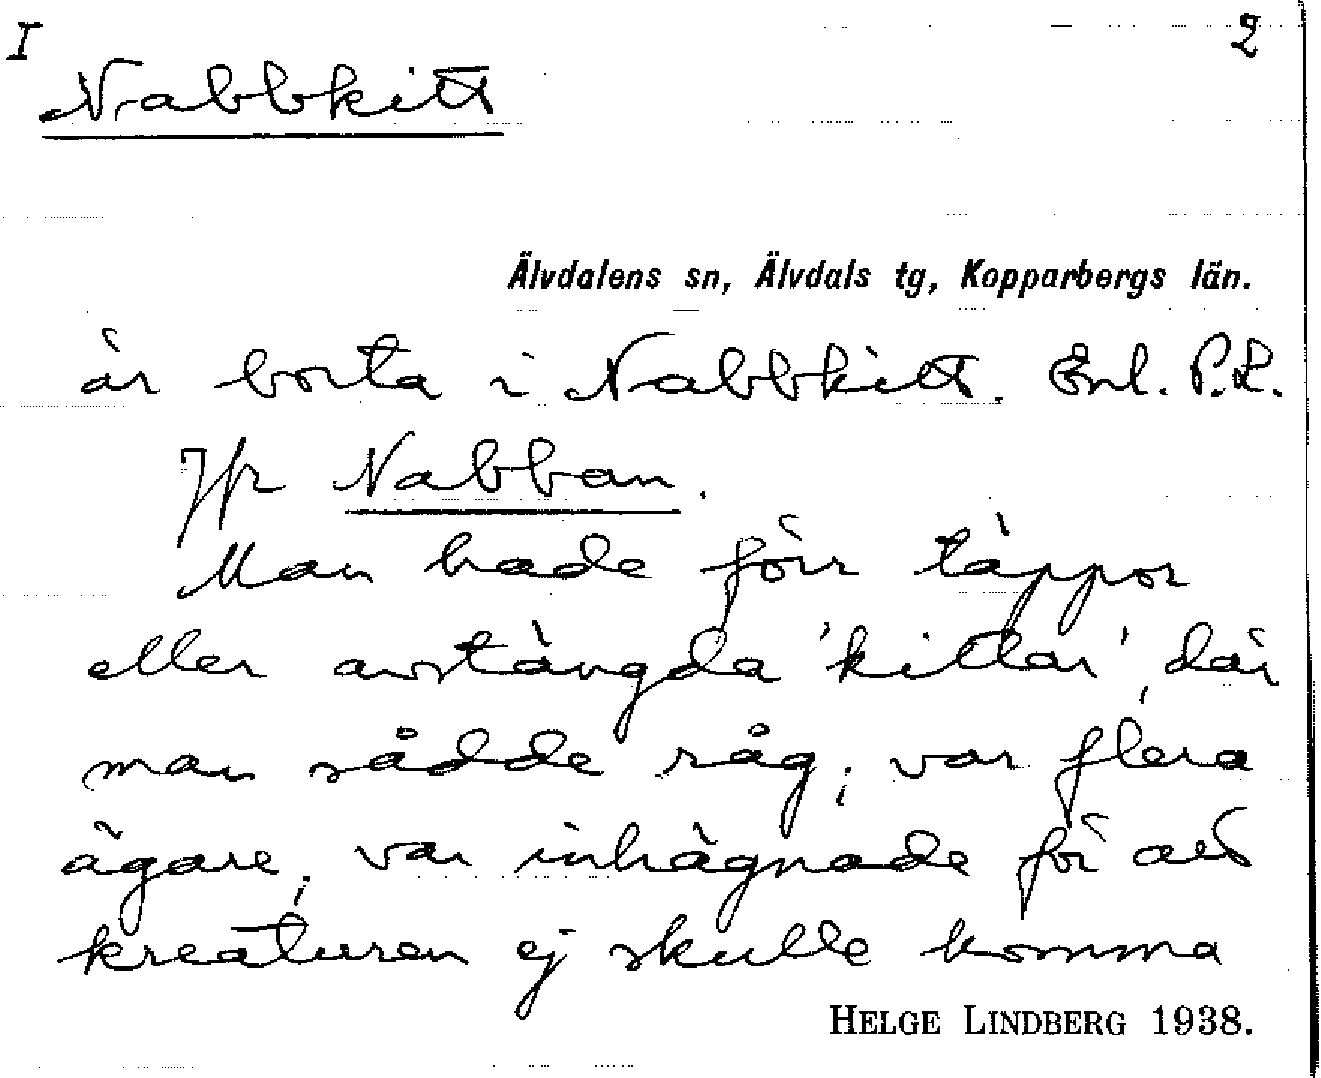 I 2
Nabbkitt
Älvdalens sn, Älvdals tg, Kopparbergs län.
är borta i Nabbkitt. Enl. P.L.
Jfr Nabban.
Man hade förr täppor
eller avstängda 'kittar', där
man sådde råg; var flera
ägare; var inhägnade för att
kreaturen ej skulle komma
HELGE LINDBERG 1938.